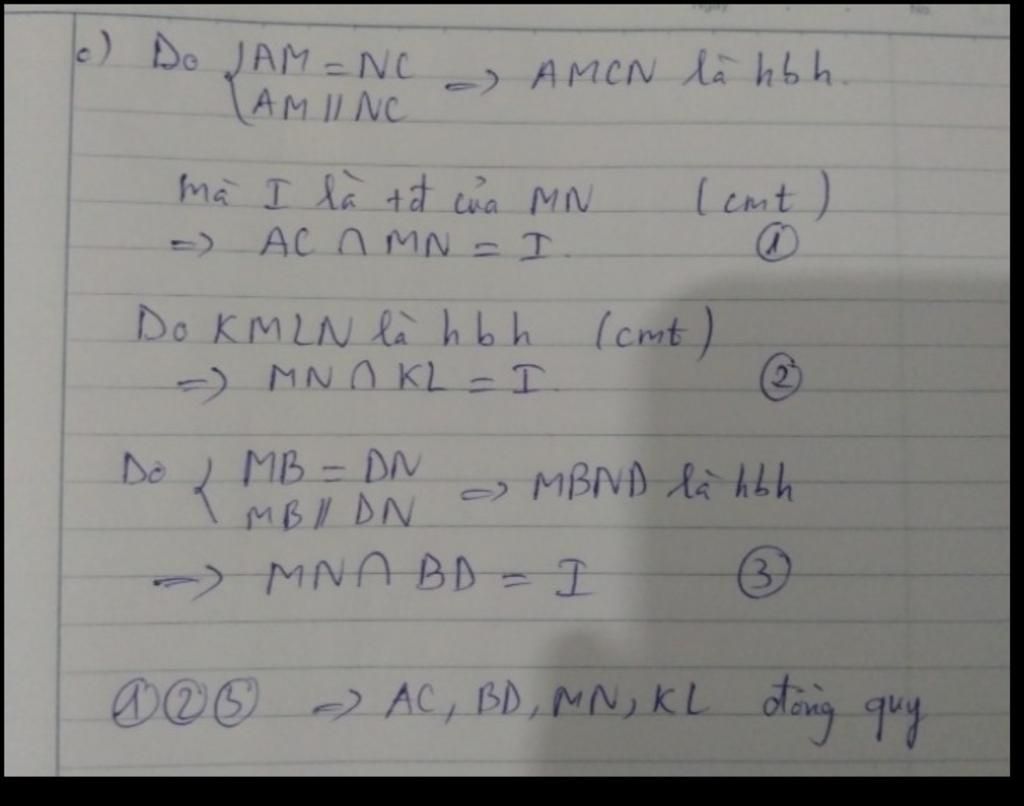 c) Do { AM = NC => AMCN là hbh.
AM // NC
mà I là tđ của MN (cmt)
=> AC ∩ MN = I. ①
Do KMLN là hbh (cmt)
=> MN ∩ KL = I. ②
Do { MB = DN => MBND là hbh
MB // DN
=> MN ∩ BD = I ③
①②③ => AC, BD, MN, KL đồng quy